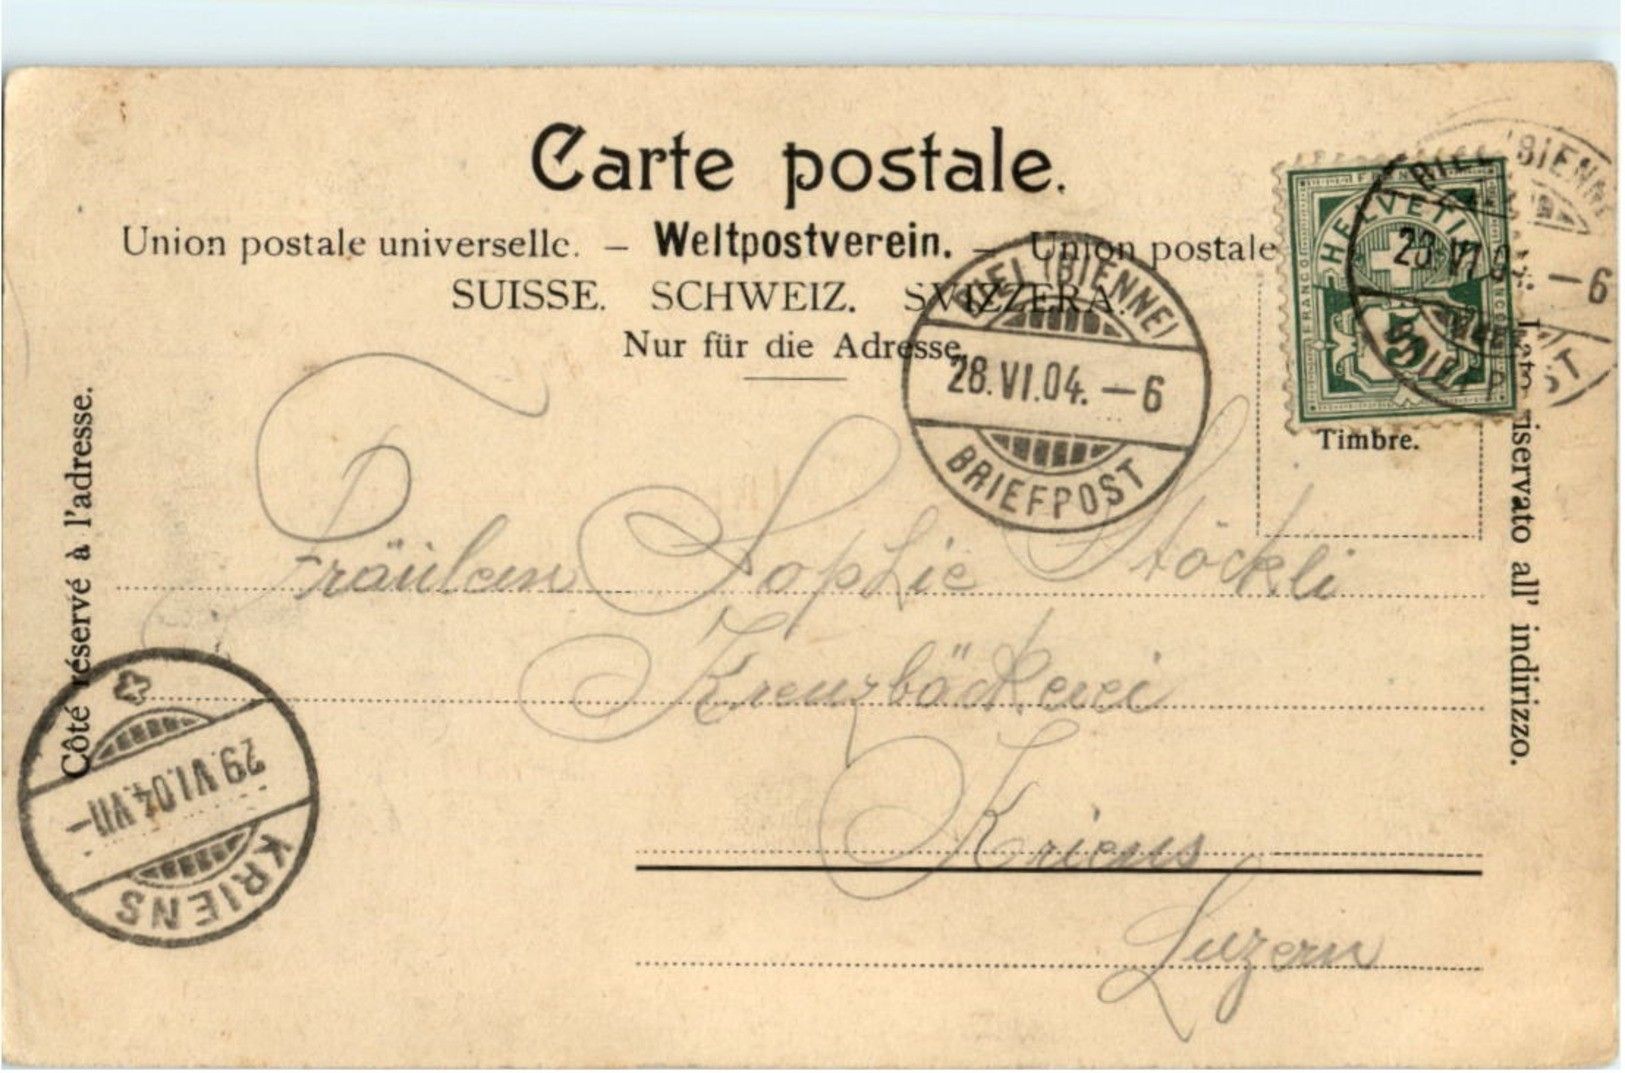 Carte postale.
Union postale universelle. — Weltpostverein. — Union postale
SUISSE. SCHWEIZ. SVIZZERA.
Nur für die Adresse.
Côté réservé à l'adresse.
Lato riservato all' indirizzo.
HELVETIA
FRANCO
5
BIEL (BIENNE)
28.VI.04.–6
BRIEFPOST
BIEL (BIENNE)
28.VI.04.–6
BRIEFPOST
Timbre.
Fräulein Sophie Stöckli
Kreuzbäckerei
Kriens
Luzern
29.VI.04.VII–
KRIENS